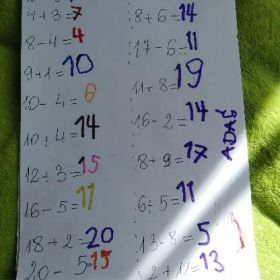 4+3=7
8-4=4
9+1=10
10-4=6
10+4=14
12+3=15
16-5=11
18+2=20
20-5=15
8+6=14
17-6=11
11+8=19
16-2=14
8+9=17
6+5=11
13-8=5
2+11=13
ADAŚ